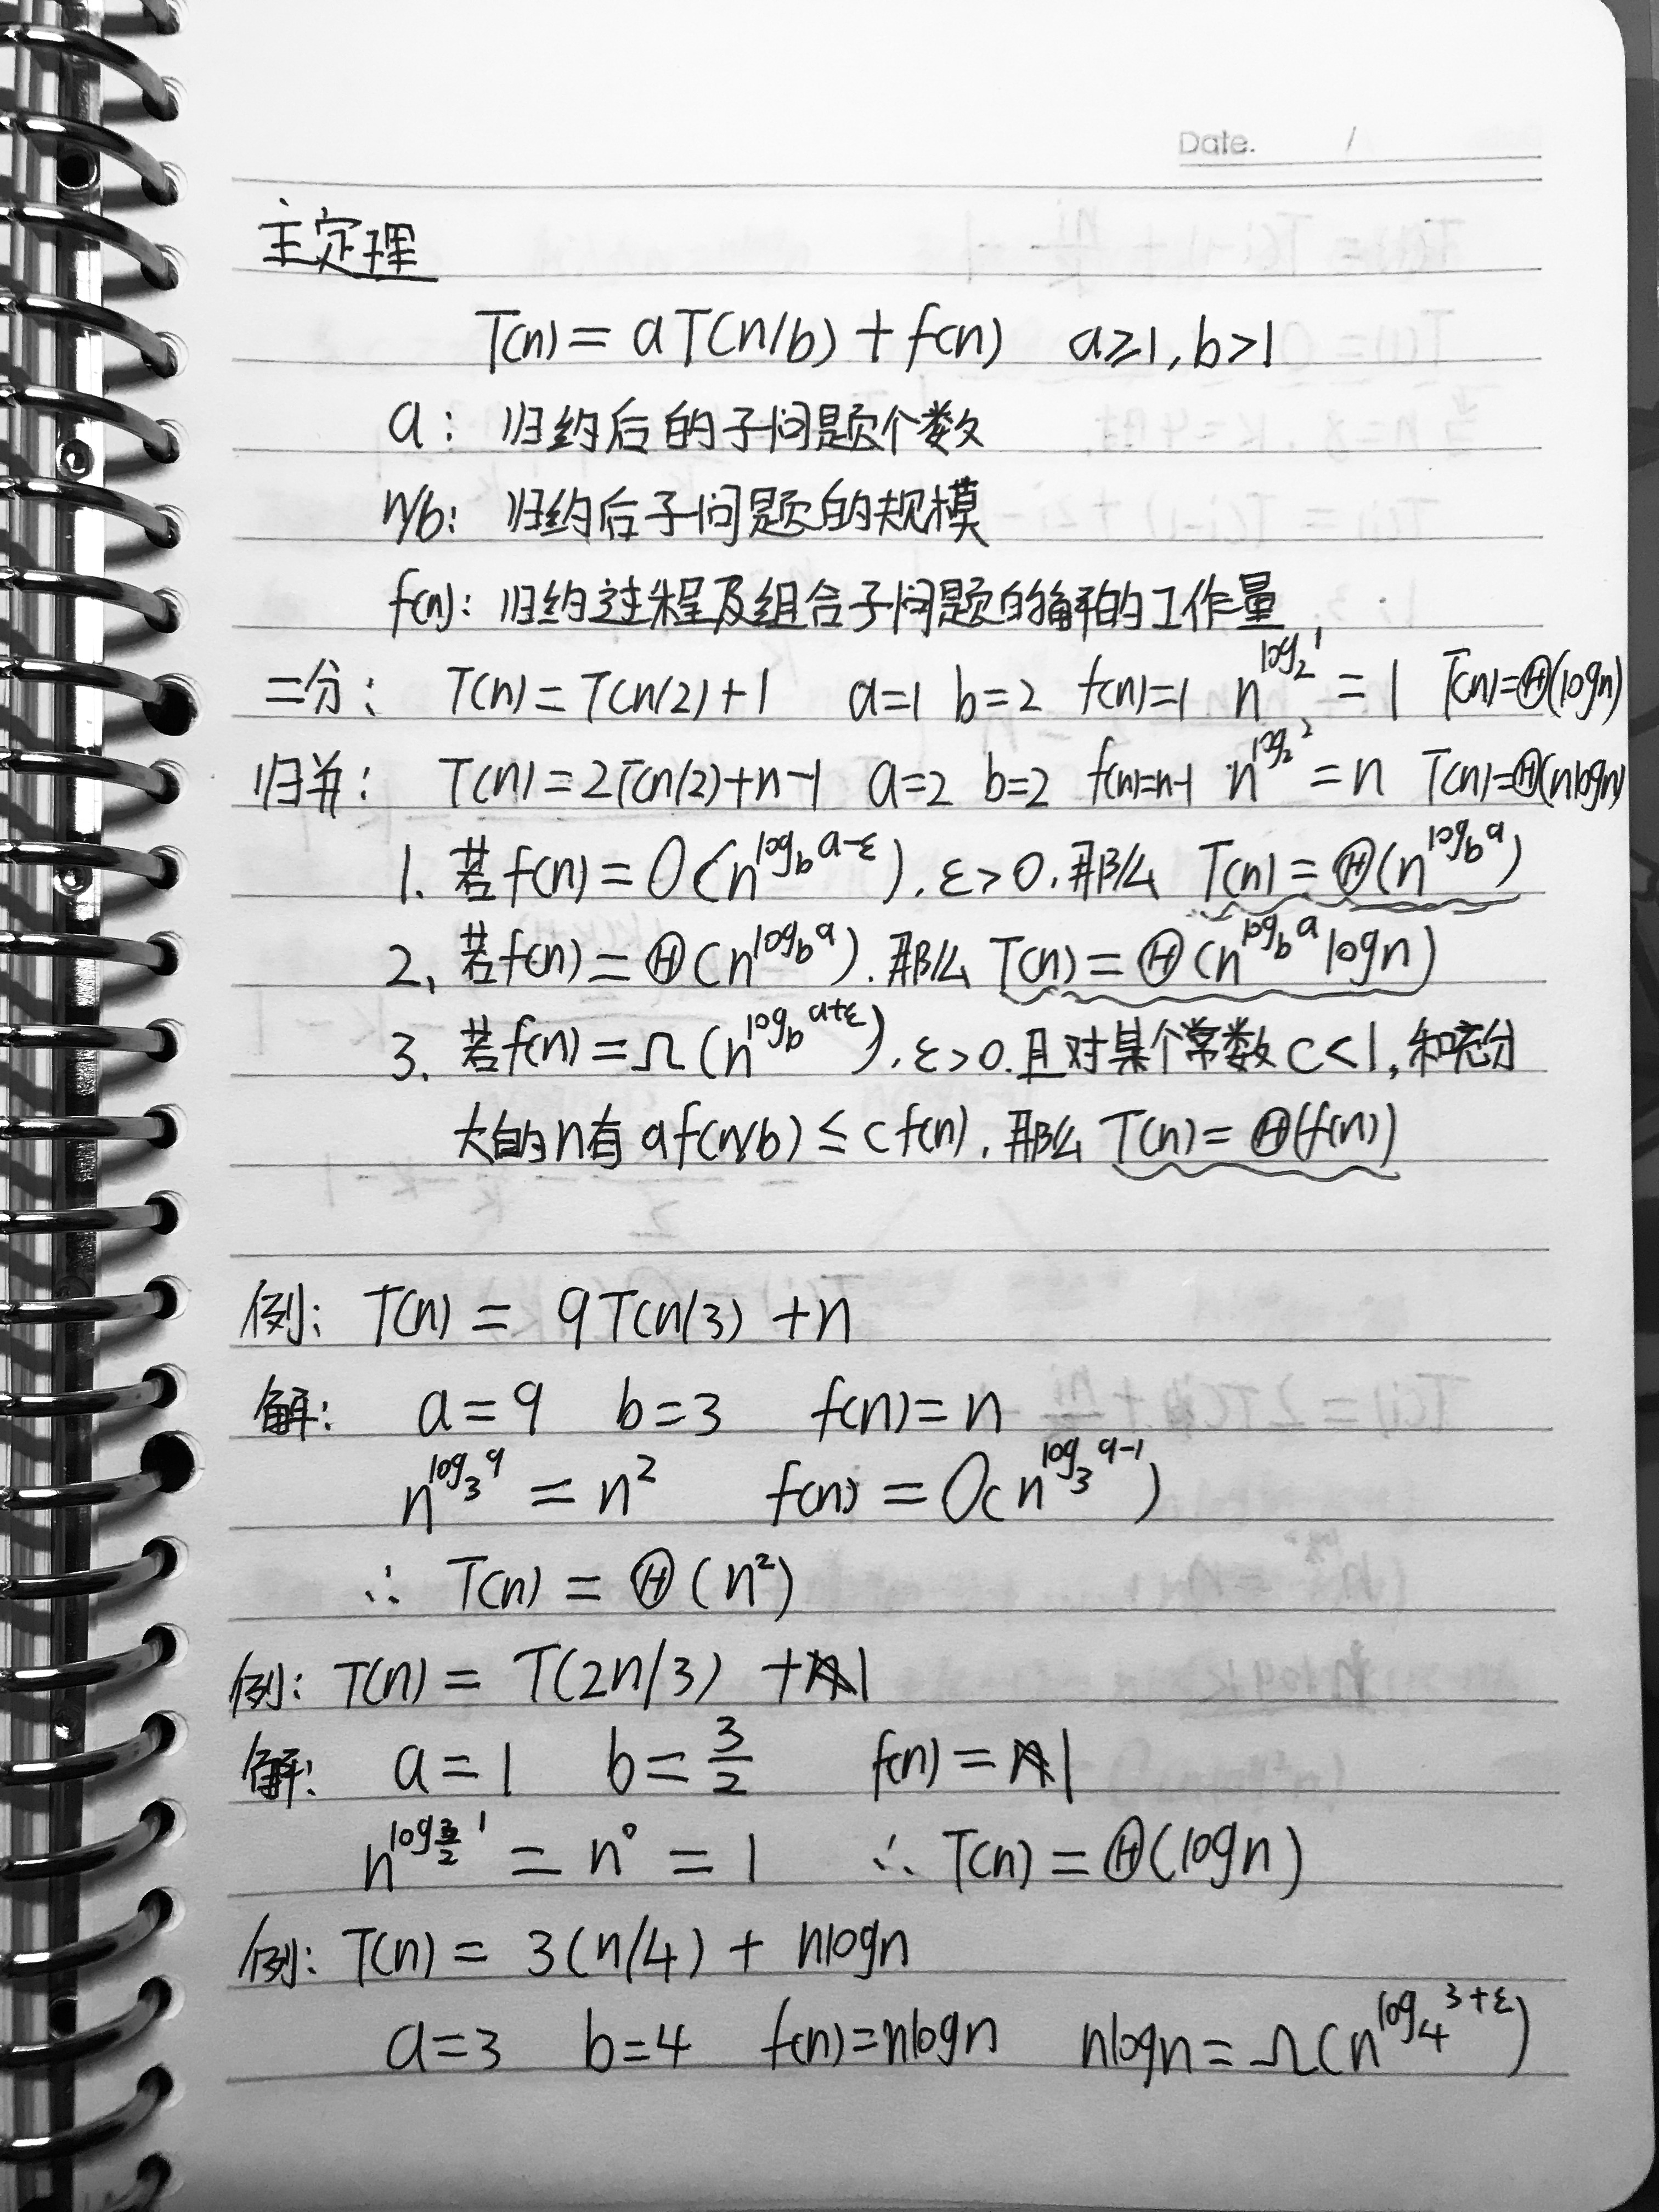 Date. /
主定理
T(n) = aT(n/b) + f(n) a≥1, b>1
a: 归约后的子问题个数
n/b: 归约后子问题的规模
f(n): 归约过程及组合子问题的解的工作量
二分: T(n) = T(n/2)+1 a=1 b=2 f(n)=1 n^{log_2 1} = 1 T(n)=Θ(logn)
归并: T(n)=2T(n/2)+n-1 a=2 b=2 f(n)=n-1 n^{log_2 2} = n T(n)=Θ(nlogn)
1. 若f(n) = O(n^{log_b a-ε}), ε>0, 那么 T(n) = Θ(n^{log_b a})
2. 若f(n) = Θ(n^{log_b a}), 那么 T(n) = Θ(n^{log_b a} logn)
3. 若f(n) = Ω(n^{log_b a+ε}), ε>0. 且对某个常数c<1, 和充分
大的n有 af(n/b) ≤ cf(n), 那么 T(n) = Θ(f(n))
例: T(n) = 9T(n/3) + n
解: a=9 b=3 f(n)=n
n^{log_3 9} = n² f(n) = O(n^{log_3 9-1})
∴ T(n) = Θ(n²)
例: T(n) = T(2n/3) + 1
解: a=1 b=3/2 f(n) = 1
n^{log_{3/2} 1} = n⁰ = 1 ∴ T(n) = Θ(logn)
例: T(n) = 3(n/4) + nlogn
a=3 b=4 f(n)=nlogn nlogn = Ω(n^{log_4 3+ε})